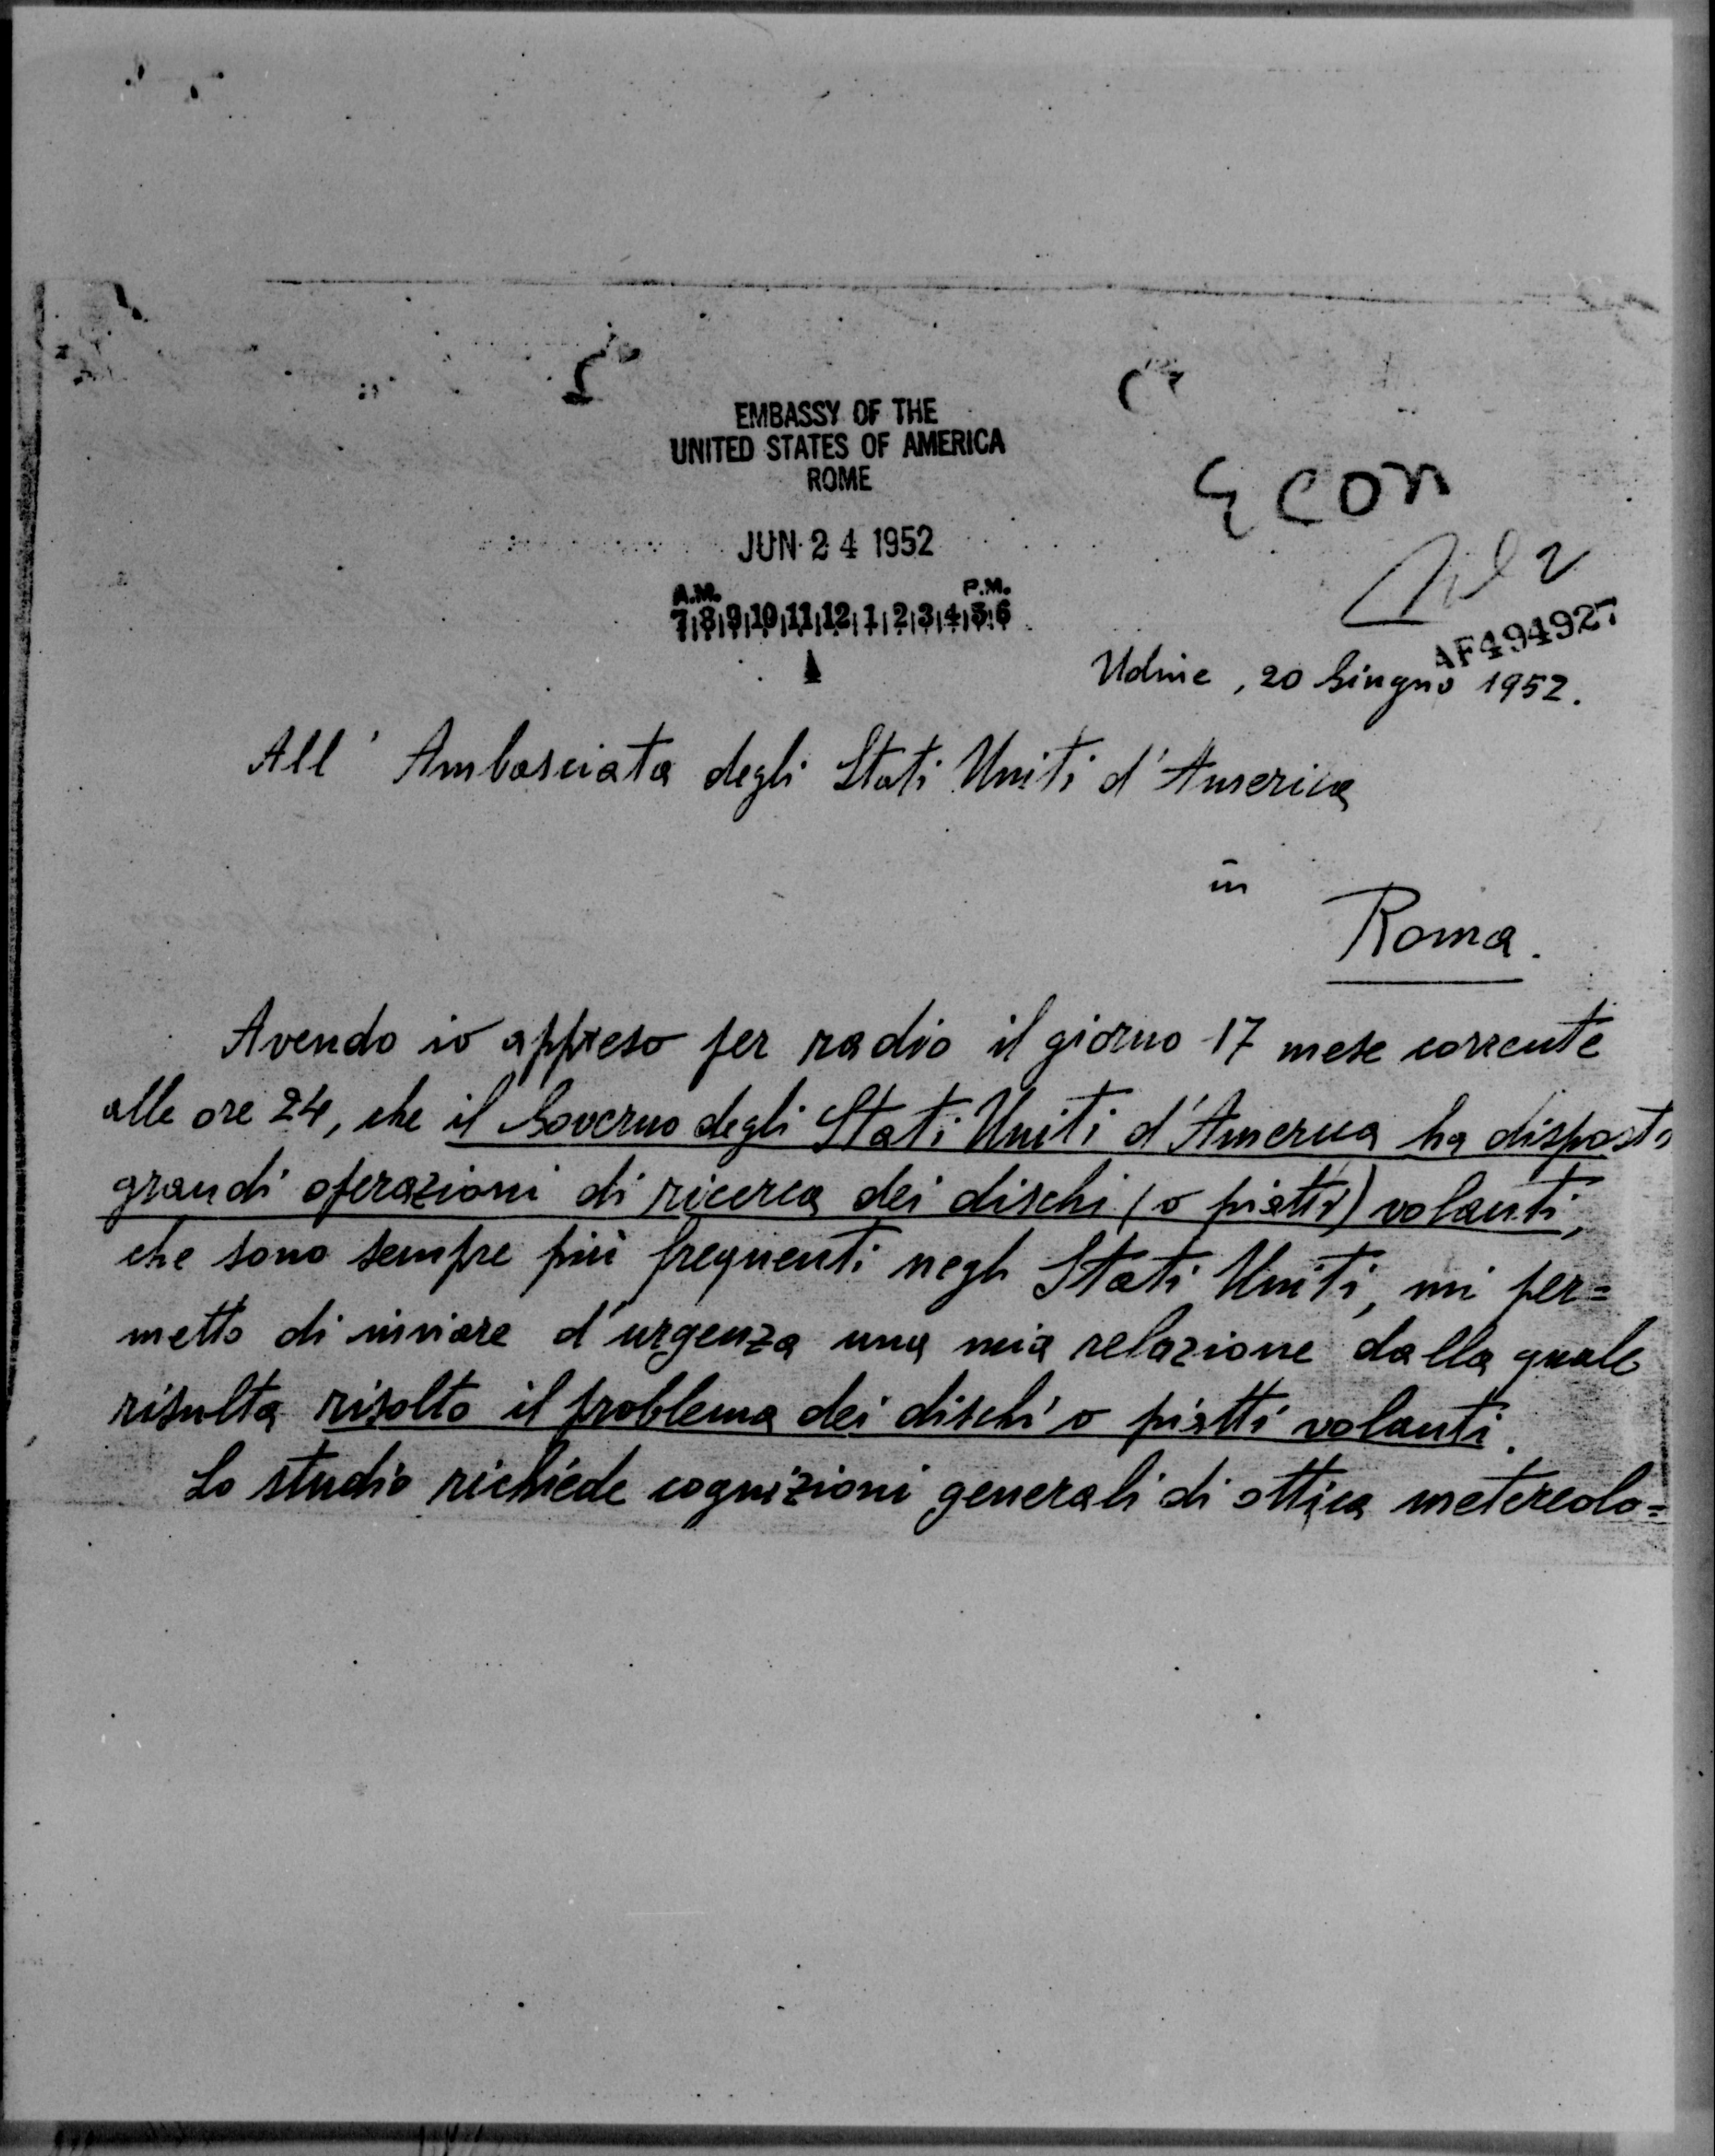 EMBASSY OF THE
UNITED STATES OF AMERICA
ROME
Econ
JUN 24 1952
A.M. P.M.
7 8 9 10 11 12 1 2 3 4 5 6
AF494927
Udine, 20 Giugno 1952.
All' Ambasciata degli Stati Uniti d'America
in
Roma.
Avendo io appreso per radio il giorno 17 mese corrente
alle ore 24, che il Governo degli Stati Uniti d'America ha disposto
grandi operazioni di ricerca dei dischi (o piatti) volanti,
che sono sempre più frequenti negli Stati Uniti, mi per=
metto di inviare d'urgenza una mia relazione dalla quale
risulta risolto il problema dei dischi o piatti volanti.
Lo studio richiede cognizioni generali di ottica metereolo=